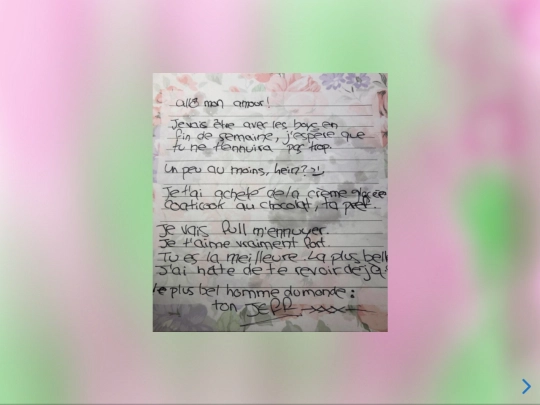 allô mon amour!
Je vais être avec les boyc en
fin de semaine, j'espère que
tu ne t'ennuira pas trop.
Un peu au moins, hein? ;)
Je t'ai acheté de la crème glacée
Coaticook au chocolat, ta pref.
Je vais full m'ennuyer.
Je t'aime vraiment fort.
Tu es la meilleure. La plus bell
J'ai hate de te revoir déjà!
le plus bel homme du monde:
ton JEFF xxxx